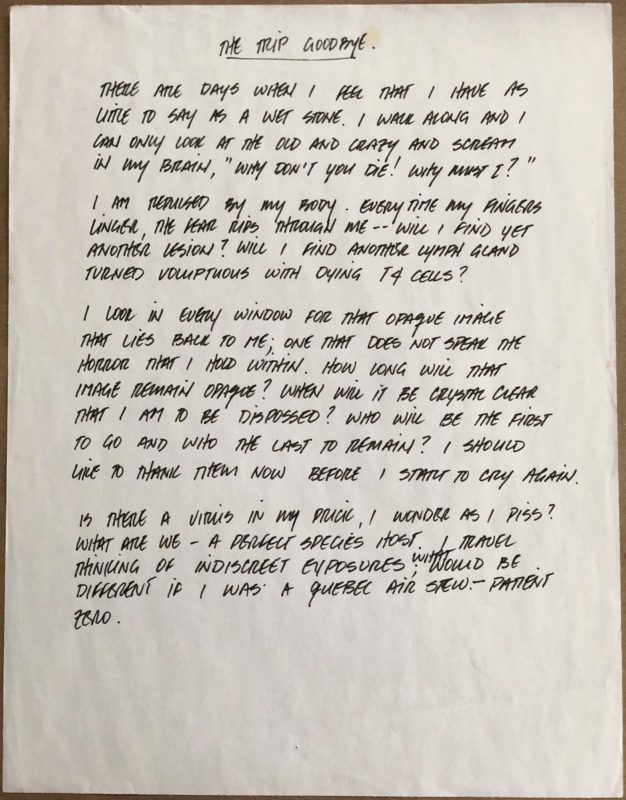 THE TRIP GOODBYE.
THERE ARE DAYS WHEN I FEEL THAT I HAVE AS
LITTLE TO SAY AS A WET STONE. I WALK ALONG AND I
CAN ONLY LOOK AT THE OLD AND CRAZY AND SCREAM
IN MY BRAIN, "WHY DON'T YOU DIE! WHY MUST I?"
I AM REPULSED BY MY BODY. EVERYTIME MY FINGERS
LINGER, THE FEAR RIPS THROUGH ME -- WILL I FIND YET
ANOTHER LESION? WILL I FIND ANOTHER LYMPH GLAND
TURNED VOLUPTUOUS WITH DYING T4 CELLS?
I LOOK IN EVERY WINDOW FOR THAT OPAQUE IMAGE
THAT LIES BACK TO ME; ONE THAT DOES NOT SPEAK THE
HORROR THAT I HOLD WITHIN. HOW LONG WILL THAT
IMAGE REMAIN OPAQUE? WHEN WILL IT BE CRYSTAL CLEAR
THAT I AM TO BE DISPOSSED? WHO WILL BE THE FIRST
TO GO AND WHO THE LAST TO REMAIN? I SHOULD
LIKE TO THANK THEM NOW BEFORE I START TO CRY AGAIN.
IS THERE A VIRUS IN MY PRICK, I WONDER AS I PISS?
WHAT ARE WE - A PERFECT SPECIES HOST. I TRAVEL
THINKING OF INDISCREET EXPOSURES; WHAT WOULD BE
DIFFERENT IF I WAS A QUEBEC AIR STEW. - PATIENT
ZERO.